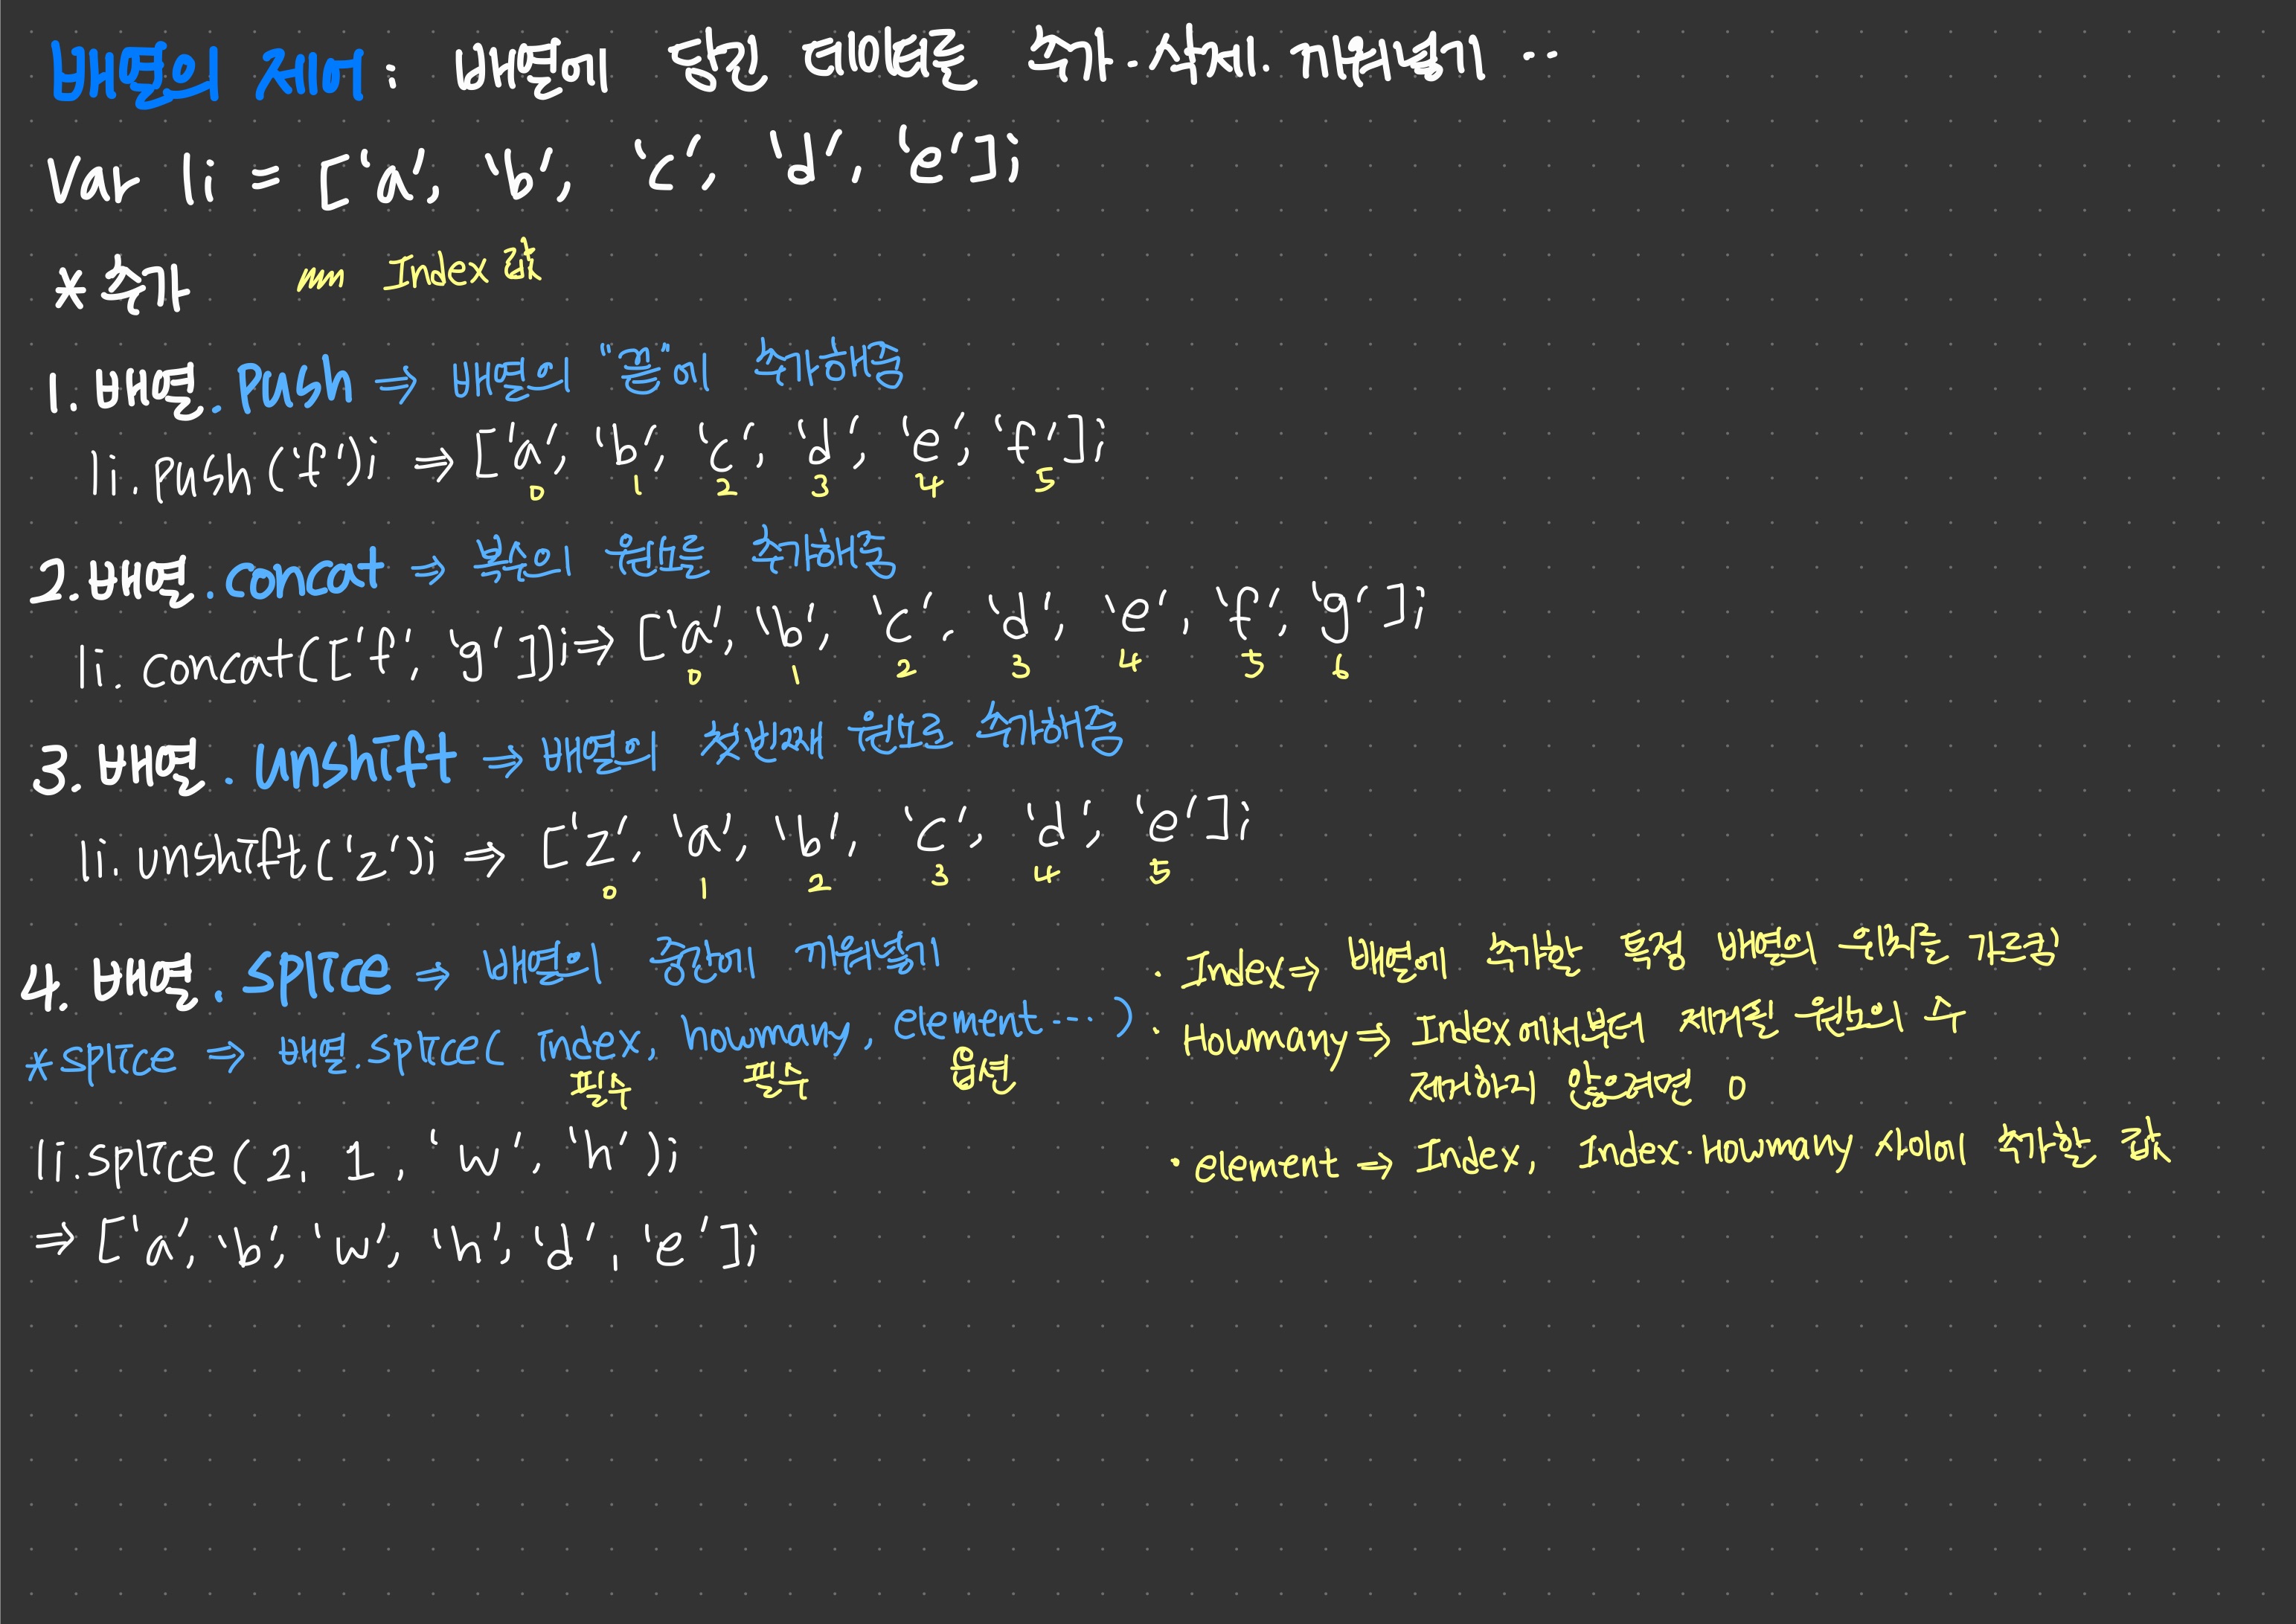 배열의 제어 : 배열에 담긴 데이터를 추가·삭제·끼워넣기 ...
Var li = ['a', 'b', 'c', 'd', 'e'];
*추가 Index 값
1. 배열.push ⇒ 배열의 "끝"에 추가해줌
li.push('f'); ⇒ ['a', 'b', 'c', 'd', 'e', 'f'];
0 1 2 3 4 5
2. 배열.concat ⇒ 복수의 원소를 추가해줌
li.concat(['f', 'g']); ⇒ ['a', 'b', 'c', 'd', 'e', 'f', 'g'];
0 1 2 3 4 5 6
3. 배열.unshift ⇒ 배열의 첫번째 원소로 추가해줌
li.unshift('z'); ⇒ ['z', 'a', 'b', 'c', 'd', 'e'];
0 1 2 3 4 5
4. 배열.splice ⇒ 배열의 중간에 끼워넣기
*splice ⇒ 배열.splice( index, howmany, element ... )
필수 필수 옵션
li.splice(2, 1, 'w', 'h');
⇒ ['a', 'b', 'w', 'h', 'd', 'e'];
· Index ⇒ 배열에 추가할 특정 배열의 위치를 가르킴
· Howmany ⇒ Index에서부터 제거될 원소의 수
제거하지 않으려면 0
· element ⇒ Index, Index·Howmany 사이에 추가할 값